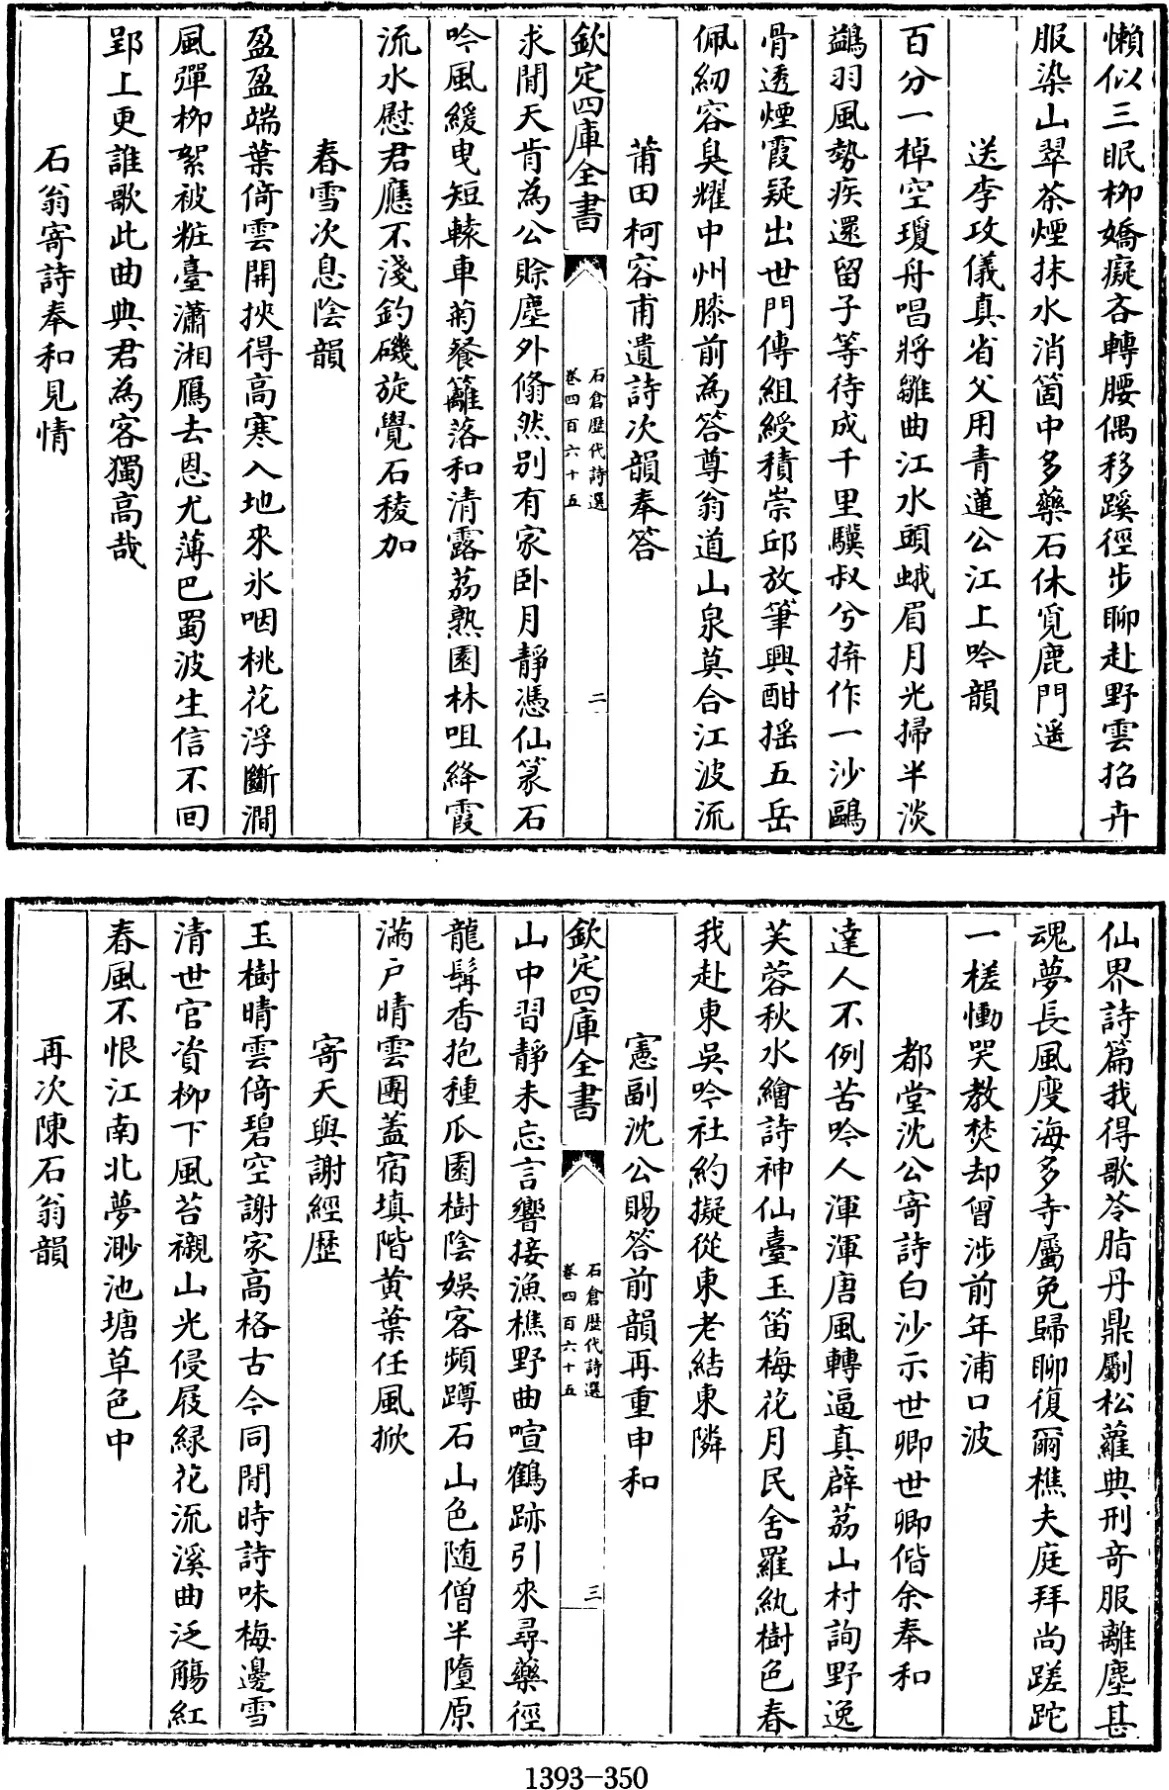 懶似三眠柳嬌癡吝轉腰偶移蹊徑步聊赴野雲招卉
服染山翠茶煙抹水消箇中多藥石休覓鹿門遥
送李攻儀真省父用青蓮公江上吟韻
百分一棹空瓊舟唱將雛曲江水頭蛾眉月光掃半淡
鷁羽風勢疾還留子等待成千里驥叔兮擠作一沙鷗
骨透煙霞疑出世門傳組綬積崇邱放筆興酣揺五岳
佩紉容臭耀中州膝前為答尊翁道山泉莫合江波流
莆田柯容甫遺詩次韻奉答
欽定四庫全書
石倉歴代詩選
卷四百六十五
二
求閒天肯為公賒塵外翛然别有家卧月靜憑仙篆石
吟風緩曳短轅車菊餐籬落和清露荔熟園林咀絳霞
流水慰君應不淺釣磯旋覺石稜加
春雪次息陰韻
盈盈端葉倚雲開挾得高寒入地來氷咽桃花浮斷澗
風彈柳絮被粧臺瀟湘鴈去恩尤薄巴蜀波生信不回
郢上更誰歌此曲典君為客獨高哉
石翁寄詩奉和見情
仙界詩篇我得歌苓脂丹鼎劚松蘿典刑竒服離塵甚
魂夢長風度海多寺屬免歸聊復爾樵夫庭拜尚蹉跎
一槎慟哭教焚却曾涉前年浦口波
都堂沈公寄詩白沙示世卿世卿偕余奉和
達人不例苦吟人渾渾唐風轉逼真薜荔山村詢野逸
芙蓉秋水繪詩神仙臺玉笛梅花月民舍羅紈樹色春
我赴東吳吟社約擬從東老結東隣
憲副沈公賜答前韻再重申和
欽定四庫全書
石倉歴代詩選
卷四百六十五
三
山中習靜未忘言響接漁樵野曲喧鶴跡引來尋藥徑
龍髯香抱種瓜園樹陰娛客頻蹲石山色随僧半墮原
滿户晴雲團蓋宿填階黄葉任風掀
寄天與謝經歴
玉樹晴雲倚碧空謝家高格古今同閒時詩味梅邊雪
清世官資柳下風苔襯山光侵屐緑花流溪曲泛觴紅
春風不恨江南北夢渺池塘草色中
再次陳石翁韻
1393-350